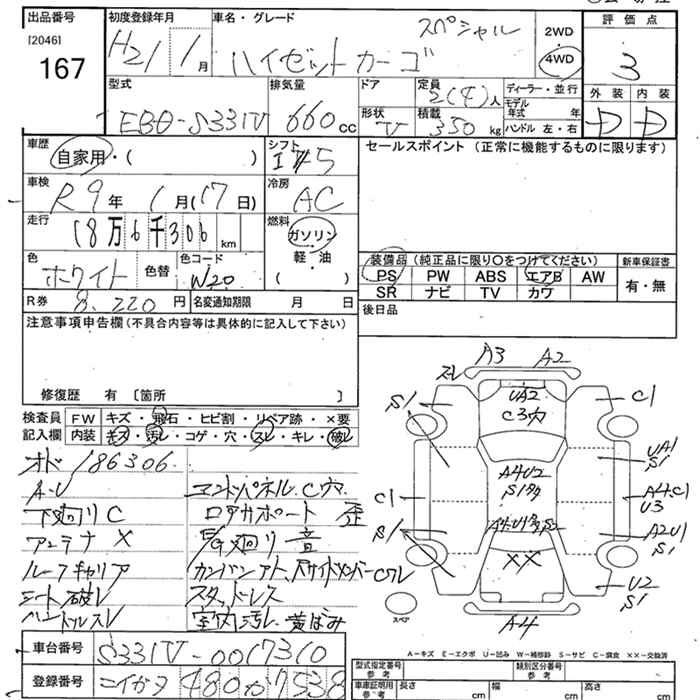 出品番号 初度登録年月 車名・グレード 評価点
[2046] 167 H21/1月 ハイゼットカーゴ スペシャル 2WD 4WD 3
型式 排気量 ドア 定員 ディーラー・並行 外装 内装
EBD-S331V 660cc 2(4)人 モデル年式 年 D D
形状 V 積載 350kg ハンドル 左・右
車歴 シフト セールスポイント (正常に機能するものに限ります)
自家用・( ) 5
車検 冷房
R9年1月(17日) AC
走行 燃料
18万6千306km ガソリン
軽・油
( )
色 色替 色コード 装備品(純正品に限り○をつけてください) 新車保証書
ホワイト W20 PS PW ABS エアB AW 有・無
SR ナビ TV カワ
R券 8,220円 名変通知期限 月 日 後日品
注意事項申告欄(不具合内容等は具体的に記入して下さい)
修復歴 有 〔箇所 〕
検査員 FW キズ・飛石・ヒビ割・リペア跡・×要
記入欄 内装 キズ・汚レ・コゲ・穴・スレ・キレ・破レ
オド 186306.
A-U フロントパネルC穴
下廻りC コアサポート歪
アンテナX E/G廻り音
ルーフキャリア カンバンアト、
シート破レ スタッドレス
ハンドルスレ 室内汚レ・黄ばみ
A3 A2
スレ
UA2
C3穴
C1
S1
UA1
S1
A4U2
S1
C1
A4.C1
U3
S1
A2U1
S1
XX
U2
S1
A4
スペア
A-キズ E-エクボ U-凹み W-補修跡 S-サビ C-腐食 XX-交換済
車台番号 S331V-0017310
登録番号 ニイガタ480か7538
型式指定番号 参考 類別区分番号 参考
車車証明用 参考 長さ cm 幅 cm 高さ cm